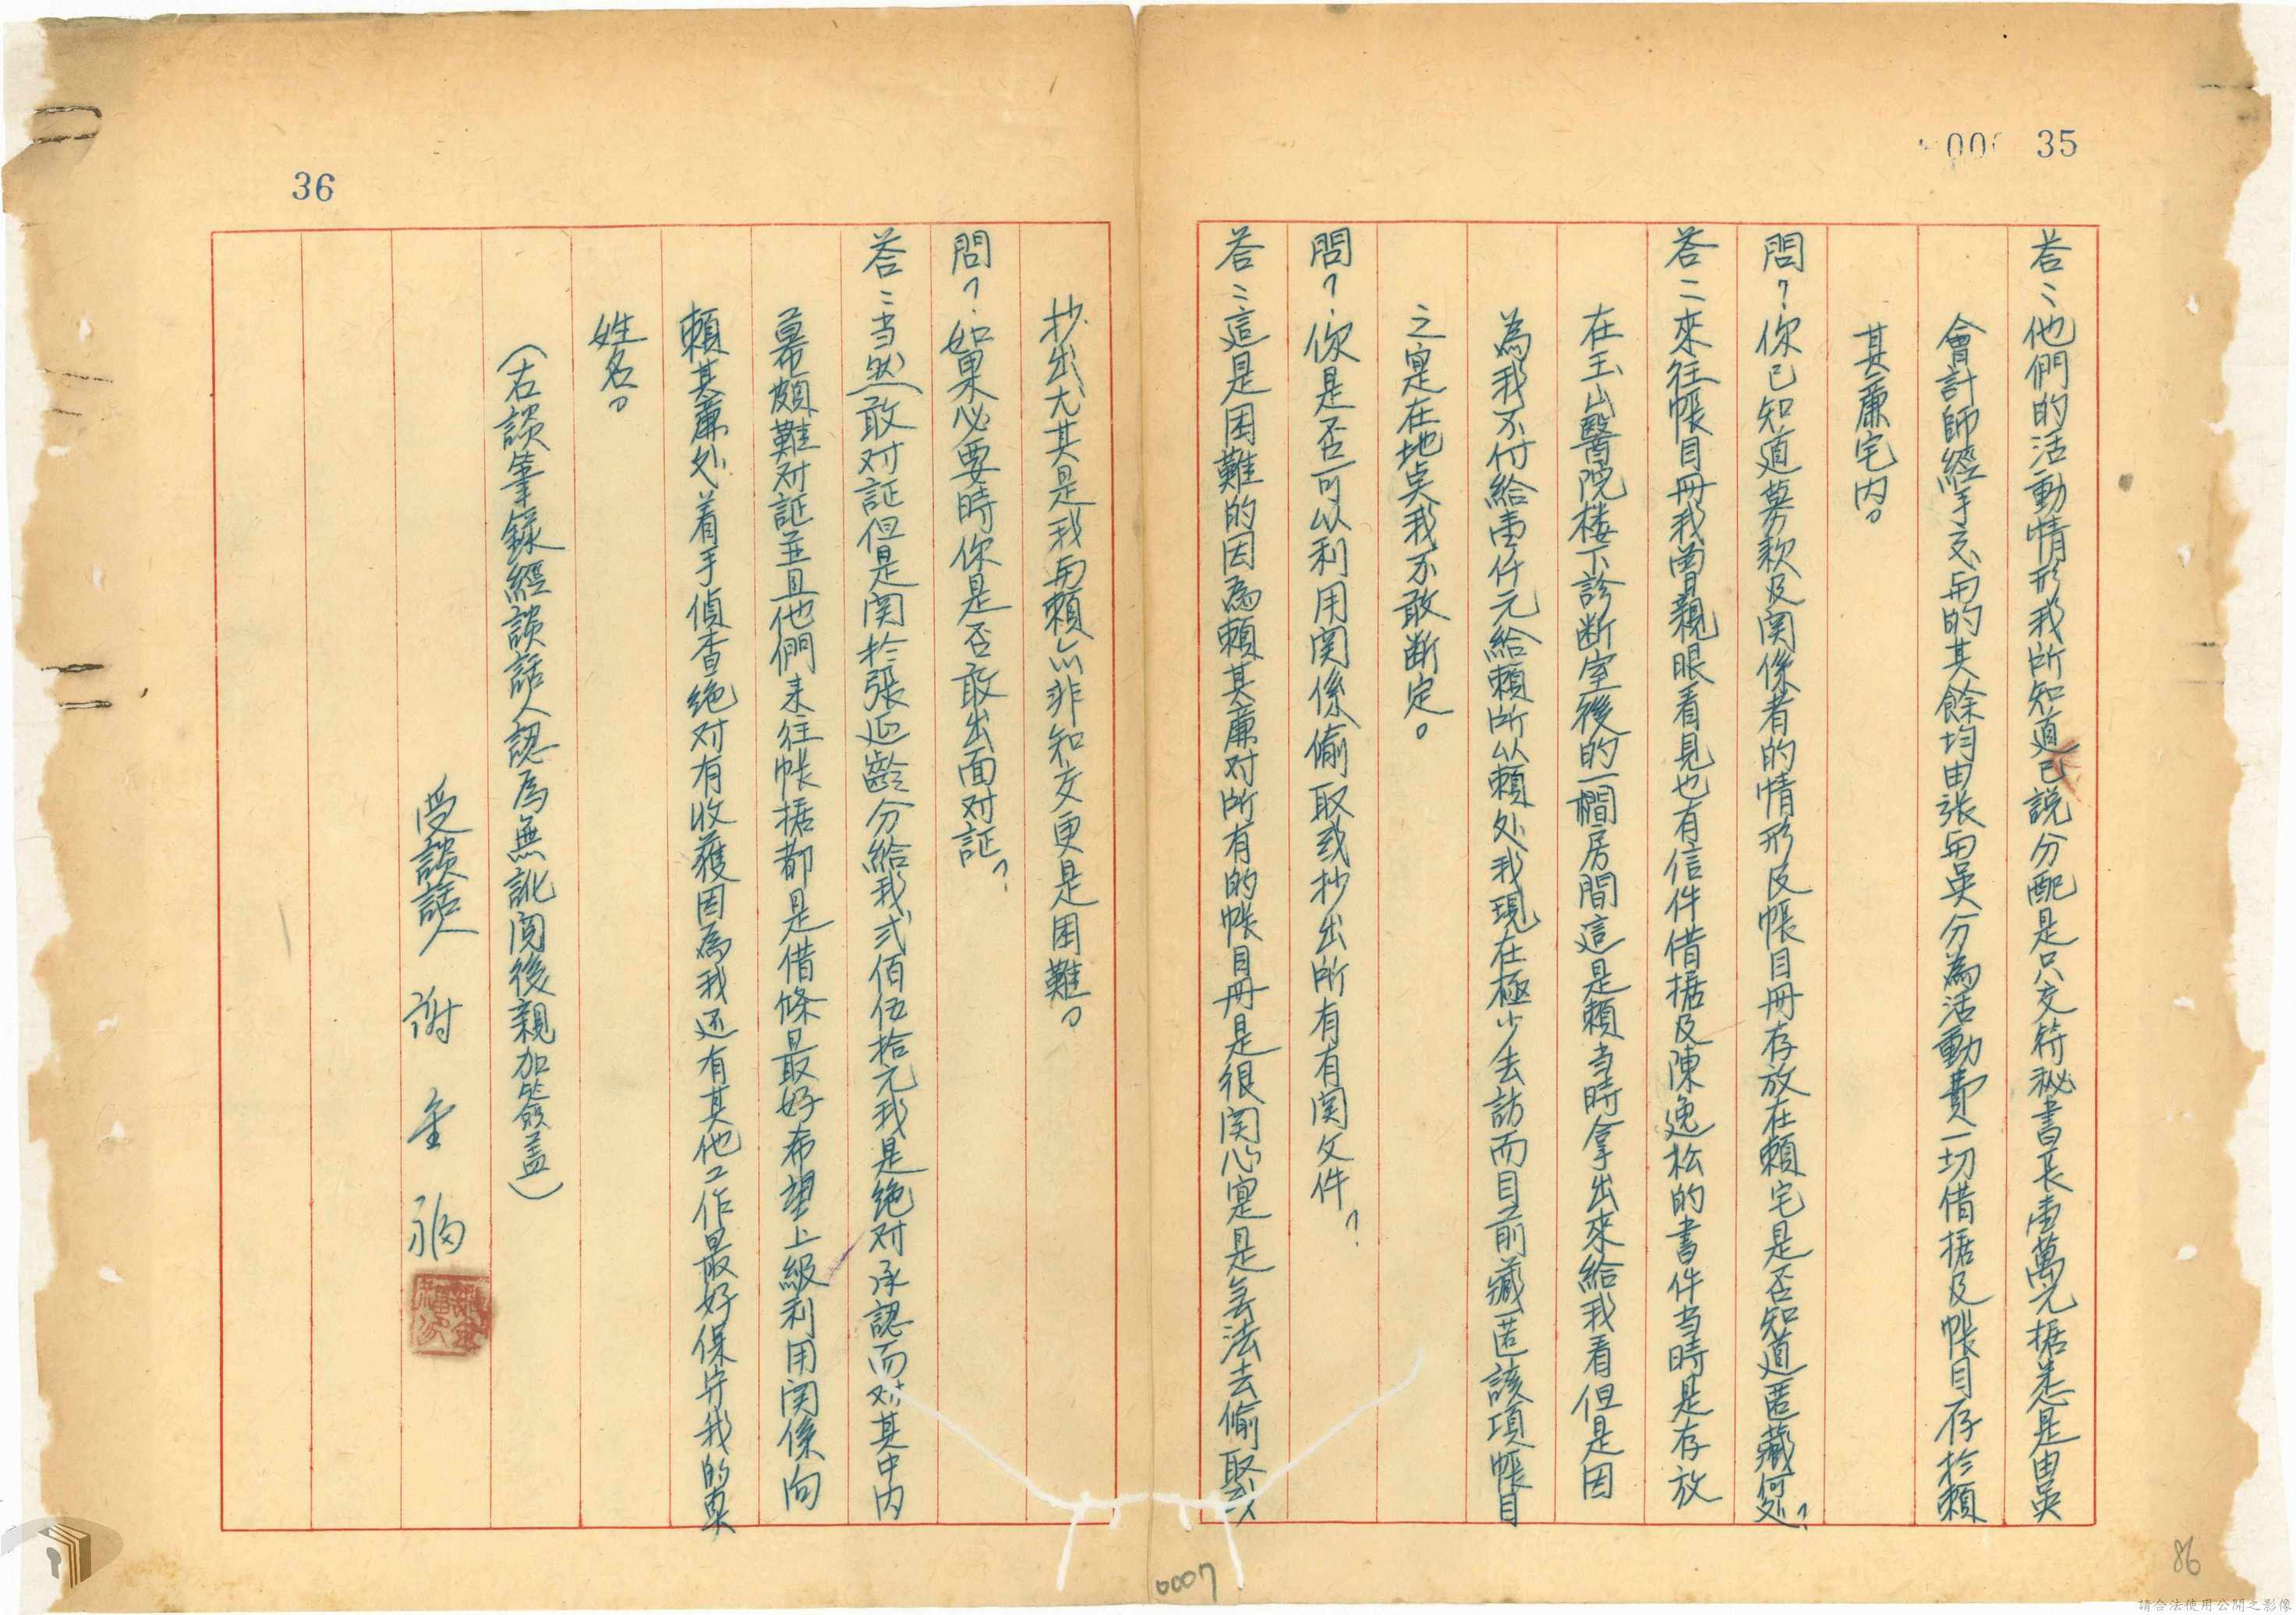 35
答:他們的活動情形我所知道已說分配是只交符秘書長壹萬元據悉是由吳
會計師經手交与的其餘均由张与吳分為活動費一切借據及帳目存於賴
其廉宅内。
問?你已知道募款及関係者的情形及帳目冊存放在賴宅是否知道匿藏何处?
答:來往帳目冊我曾親眼看見也有信件借据及陳逸松的書件当時是存放
在玉山醫院楼下診断室後的一櫊房間這是賴当時拿出來給我看但是因
為我不付給壹仟元給賴所以賴处我現在極少去訪而目前藏匿該項帳目
之寔在地吳我不敢断定。
問?你是否可以利用関係偷取或抄出所有有関文件?
答:這是困難的因為賴其廉对所有的帳目冊是很関心寔是無法去偷取以
36
抄出尤其是我与賴以非知交更是困難。
問?如果必要時你是否敢出面对証?
答:当然敢对証但是関於張延齡分給我弍佰伍拾元我是绝对承認而对其中内
幕頗難对証並且他們来往帐据都是借條最好希望上級利用関係向
賴其廉处着手偵查绝对有收獲因為我还有其他工作最好保守我的真
姓名。
(右談筆錄經談話人認為無訛閱後親加簽盖)
受談話人 謝金福
0007
86
請合法使用公開之影像